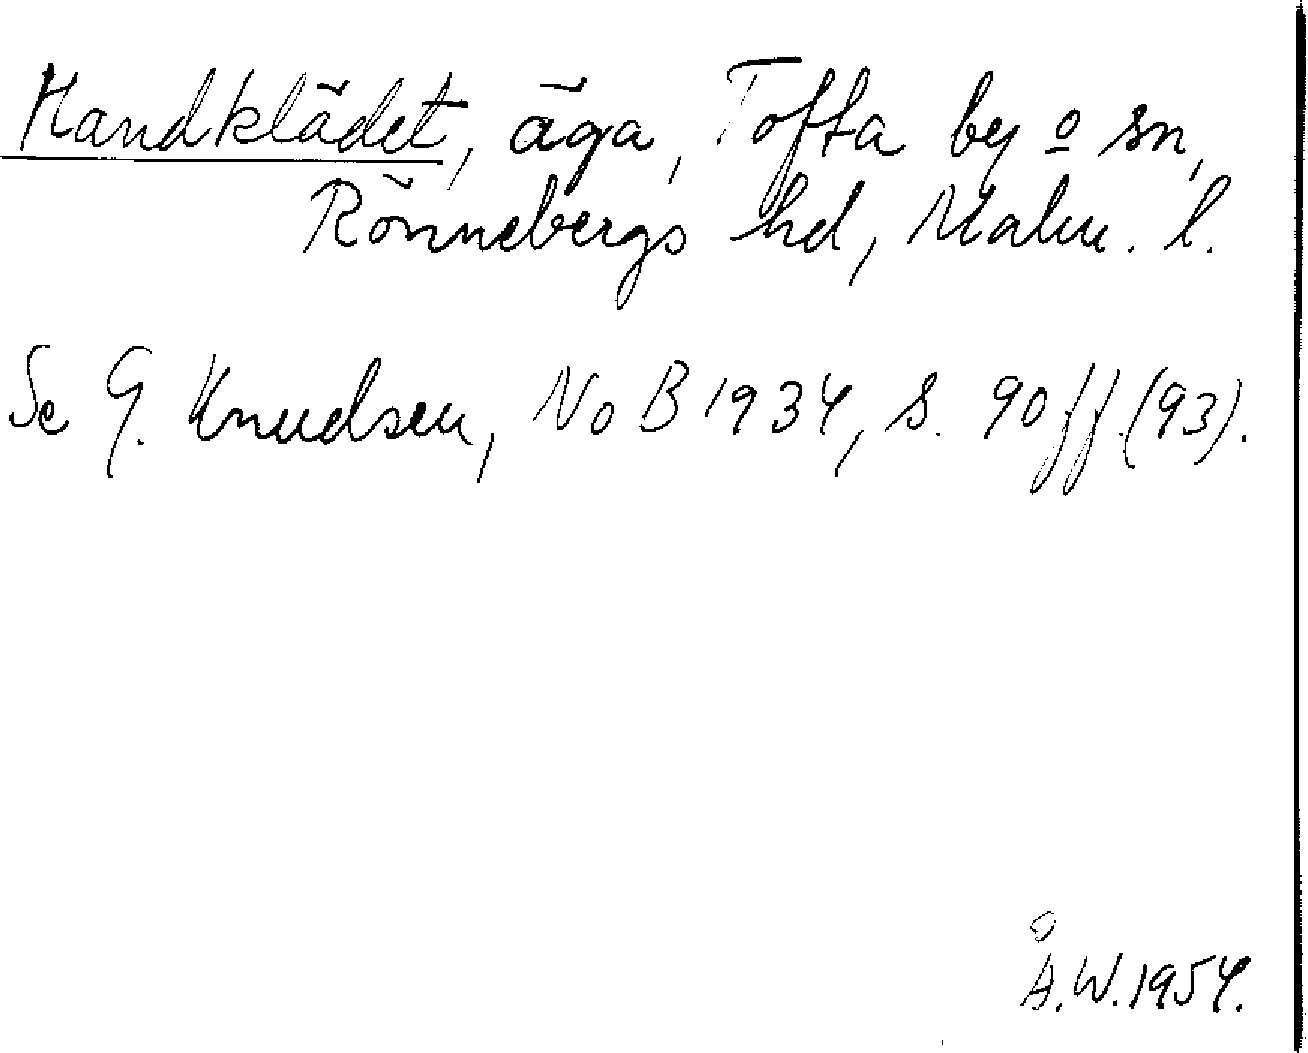 Handklädet, äga, Tofta by o sn,
Rönnebergs hd, Malm. l.
Se G. Knudsen, NoB 1934, s. 90 ff. (93).
Å.W. 1954.